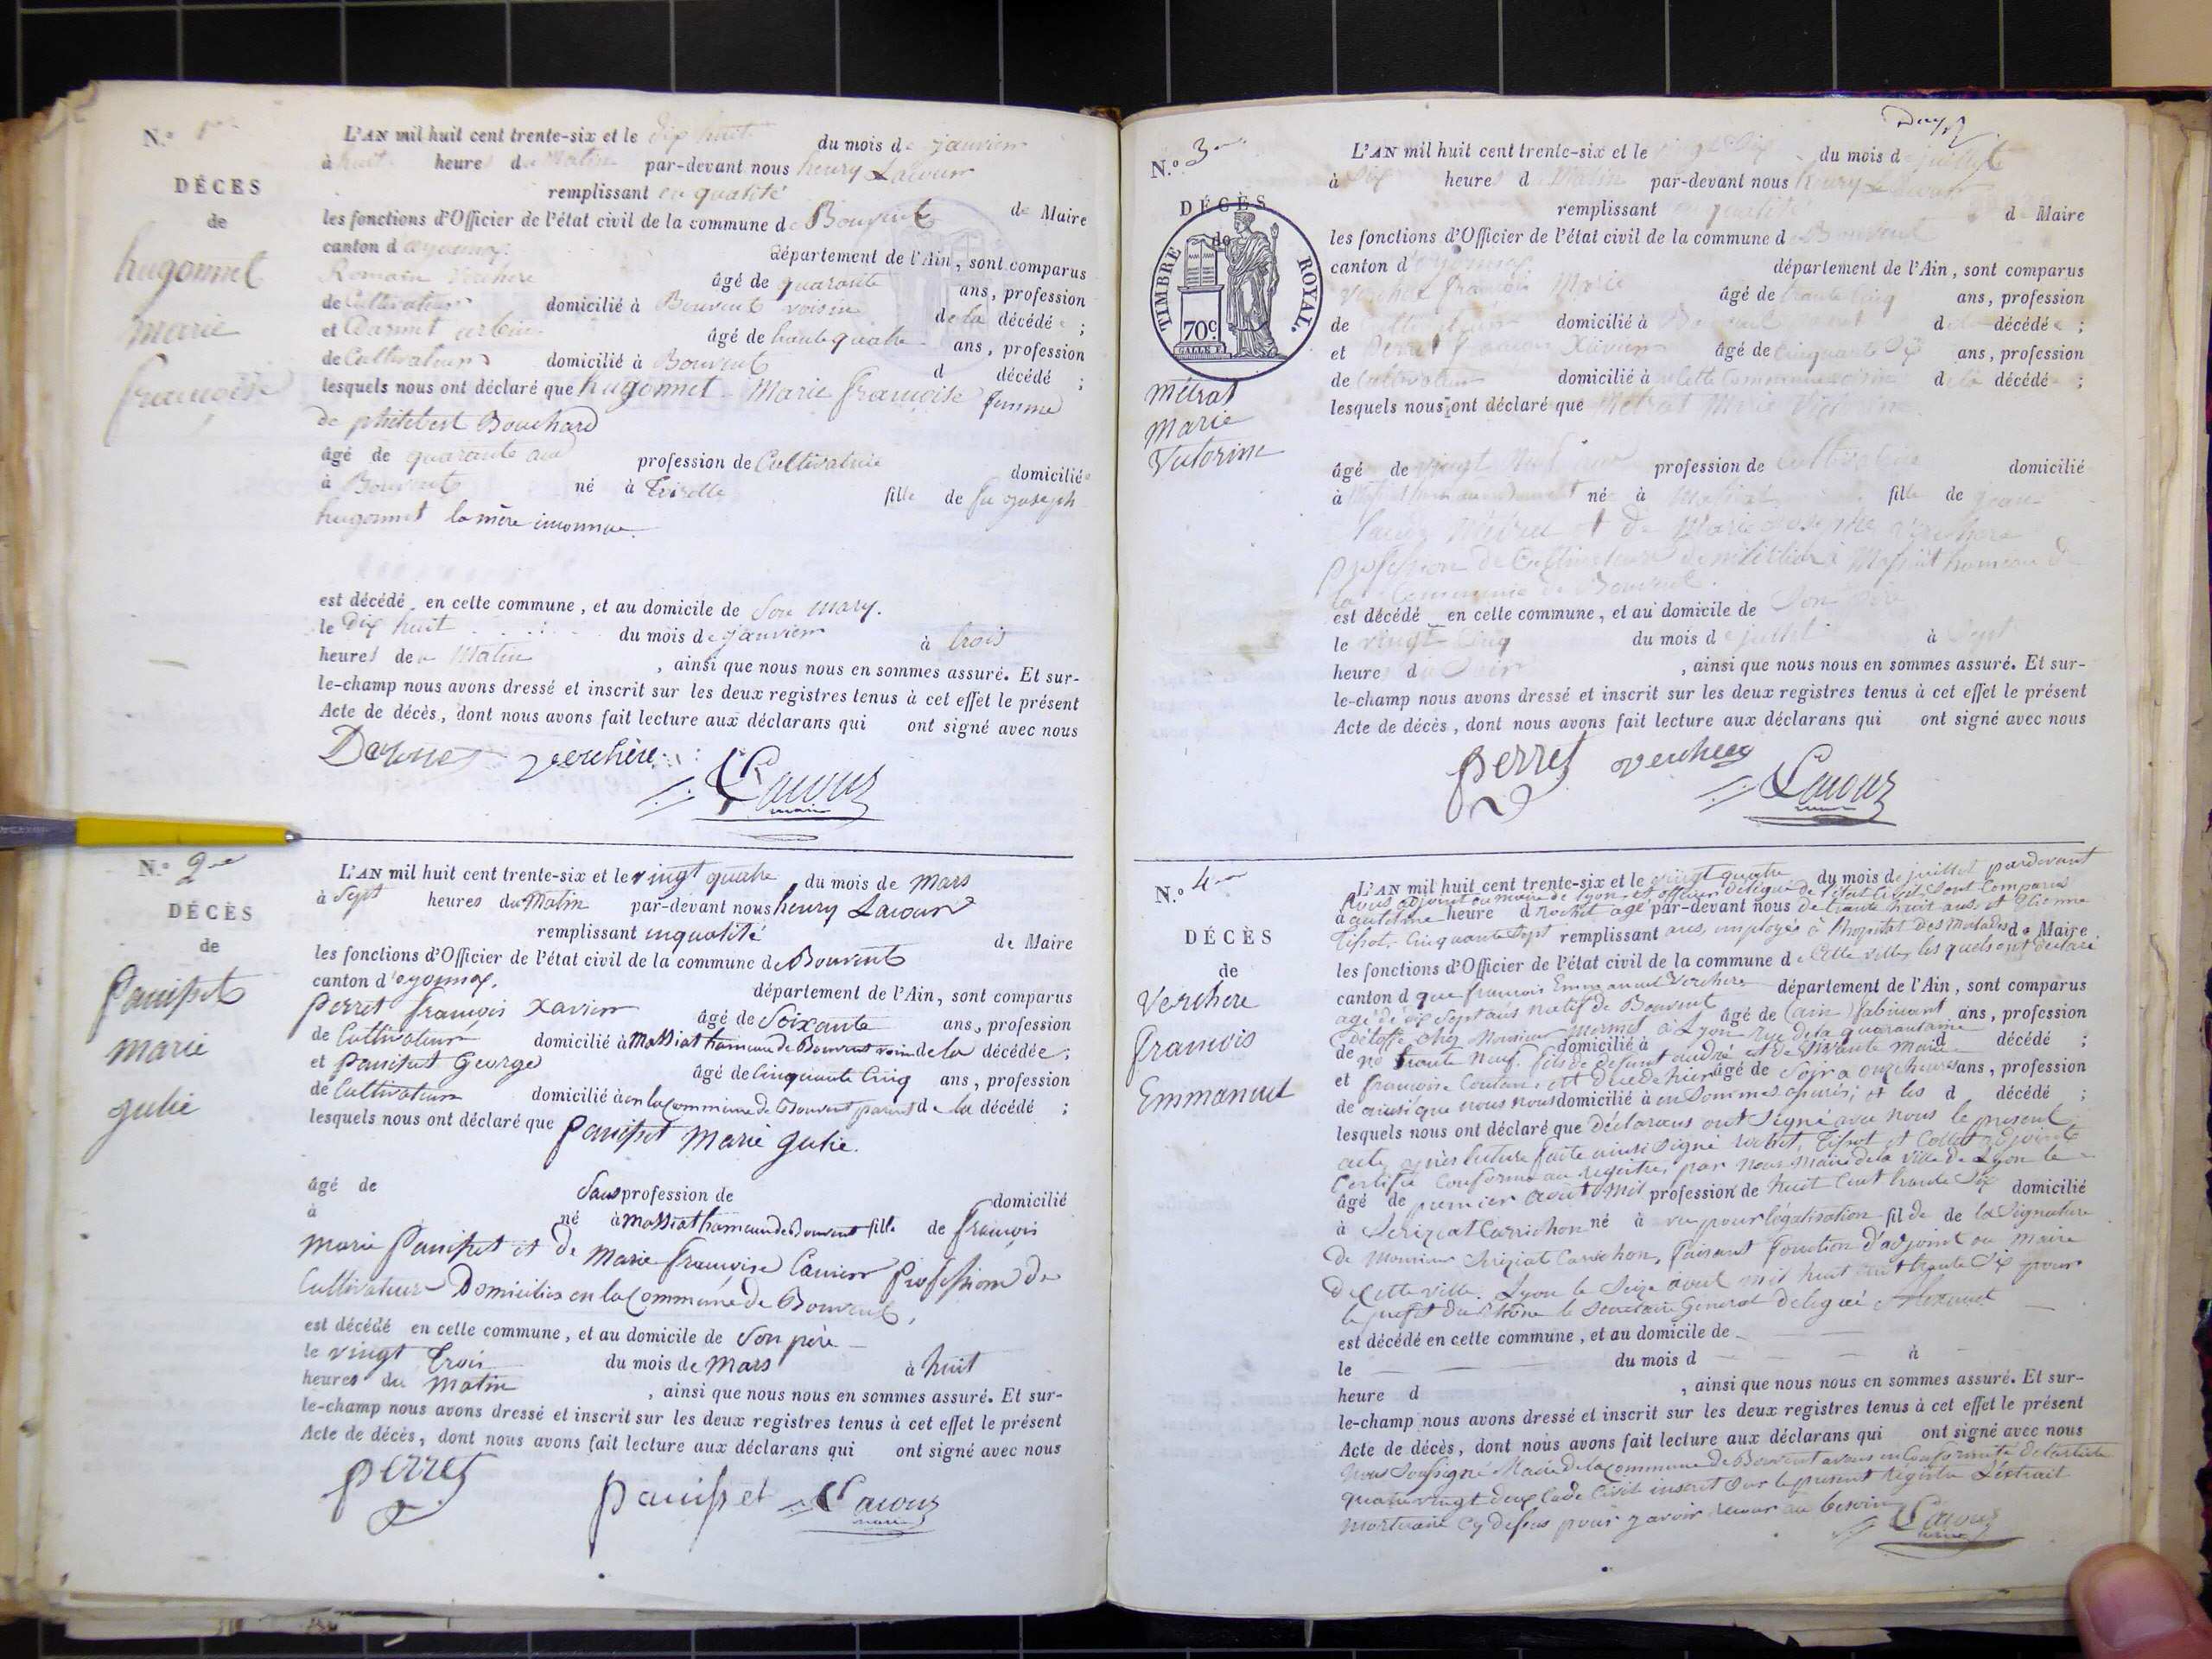 N.º 1er
DÉCES
de
hugonnet
marie
françoise
L'AN mil huit cent trente-six et le dix huit du mois de janvier
à huit heures du Matin par-devant nous henry Lacour
remplissant en qualité de Maire
les fonctions d'Officier de l'état civil de la commune de Bouvent
canton d'oyonnax. département de l'Ain, sont comparus
Romain Verchere âgé de quarante ans, profession
de Cultivateur domicilié à Bouvent voisin de la décédée ;
et âgé de trente quatre ans, profession
de Cultivateur domicilié à Bouvent d décédé ;
lesquels nous ont déclaré que hugonnet Marie françoise femme
de philibert Bouchard
âgé de quarante ans profession de Cultivatrice domiciliée
à Bouvent né à fille de feu joseph
hugonnet la mère inconnue.
est décédé en cette commune, et au domicile de Son mary.
le Dix huit du mois de janvier à trois
heures de Matin , ainsi que nous nous en sommes assuré. Et sur-
le-champ nous avons dressé et inscrit sur les deux registres tenus à cet effet le présent
Acte de décès, dont nous avons fait lecture aux déclarans qui ont signé avec nous
verchère Lacour
maire
N.º 2me
DÉCÈS
de
Panisset
marie
julie
L'AN mil huit cent trente-six et le vingt quatre du mois de mars
à Sept heures du Matin par-devant nous henry Lacour
remplissant en qualité de Maire
les fonctions d'Officier de l'état civil de la commune de Bouvent
canton d'oyonnax. département de l'Ain, sont comparus
perret françois Xavier âgé de Soixante ans, profession
de Cultivateur domicilié à Massiat hameau de Bouvent voisin de la décédée ;
et panisset George âgé de Cinquante Cinq ans, profession
de Cultivateur domicilié à en la Commune de Bouvent parent de la décédé ;
lesquels nous ont déclaré que panisset Marie julie.
âgé de Sans profession de domicilié
à né à Massiat hameau de Bouvent fille de françois
marie Panisset et de Marie françoise profession de
Cultivateur Domiciliés en la Commune de Bouvent,
est décédé en cette commune, et au domicile de Son père
le vingt trois du mois de Mars à huit
heures du Matin , ainsi que nous nous en sommes assuré. Et sur-
le-champ nous avons dressé et inscrit sur les deux registres tenus à cet effet le présent
Acte de décès, dont nous avons fait lecture aux déclarans qui ont signé avec nous
perret panisset Lacour
maire
N.º 3me
DÉCÈS
de
TIMBRE ROYAL.
70c.
métrat
marie
Victorine
L'AN mil huit cent trente-six et le vingt Six du mois de juillet
à Six heures du Matin par-devant nous henry Lacour
remplissant en qualité de Maire
les fonctions d'Officier de l'état civil de la commune de Bouvent
canton d'oyonnax département de l'Ain, sont comparus
Verchere françois Marie âgé de trente Cinq ans, profession
de Cultivateur domicilié à Bouvent de la décédée ;
et Perret françois Xavier âgé de Cinquante Six ans, profession
de Cultivateur domicilié à Cette Commune voisin de la décédée ;
lesquels nous ont déclaré que Métrat Marie Victorine
âgé de vingt profession de Cultivatrice domicilié
à né à Massiat fille de jean
Métrat et de Marie Verchere
profession de Cultivateur à Massiat hameau de
la Commune de Bouvent.
est décédé en cette commune, et au domicile de Son père
le vingt Cinq du mois de juillet à Sept
heures du Soir , ainsi que nous nous en sommes assuré. Et sur-
le-champ nous avons dressé et inscrit sur les deux registres tenus à cet effet le présent
Acte de décès, dont nous avons fait lecture aux déclarans qui ont signé avec nous
perret Lacour
maire
N.º 4me
DÉCÈS
de
Verchere
françois
Emmanuel
L'AN mil huit cent trente-six et le vingt quatre du mois de juillet pardevant
Nous adjoint au maire de Lyon et officier délégué de l'état Civil Sont Comparus
à heure d rochet agé par-devant nous de trente huit ans, et Etienne
Tissot, Cinquante Sept remplissant ans, employés à l'hopital des malades de Maire
les fonctions d'Officier de l'état civil de la commune de Cette ville, les quels ont déclaré
canton d que françois Emmanuel Verchere département de l'Ain, sont comparus
agé de dix Sept ans natif de Bouvent âgé de (ain) fabricant ans, profession
de d'étoffe chez Monsieur Mermet domicilié à Lyon Rue de la quarantaine d décédé ;
et no trente Neuf. fils de defunt andré et de vivante marie
françoise est décédé hier âgé de Soir a onze heures ans, profession
de ainsi que nous nous domicilié à en Sommes assurés; et les d décédé ;
lesquels nous ont déclaré que déclarans ont Signé avec nous le present
acte après lecture faite ainsi Signé rochet, Tissot et adjoint
Certifié Conforme au registre, par nous Maire de la ville de Lyon le
âgé de premier août mil profession de huit Cent trente Six domicilié
à né à vu pour légalisation fil de de la Signature
de Monsieur faisant fonction d'adjoint au maire
de Cette ville. Lyon le Seize août mil huit Cent trente Six pour
le préfet du Rhône le Secretaire General délégué
est décédé en cette commune, et au domicile de
le du mois d à
heure d , ainsi que nous nous en sommes assuré. Et sur-
le-champ nous avons dressé et inscrit sur les deux registres tenus à cet effet le présent
Acte de décès, dont nous avons fait lecture aux déclarans qui ont signé avec nous
Nous Soussigné Maire de la Commune de Bouvent avons en Conformité de l'article
quatre vingt deux Code Civil inscrit Sur le present registre L'extrait
mortuaire Cy dessus pour y avoir recour au besoin
Lacour
maire